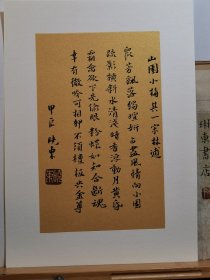 山園小梅其一宋林逋
衆芳搖落獨暄妍占盡風情向小園
疏影橫斜水清淺暗香浮動月黄昏
霜禽欲下先偷眼粉蝶如知合斷魂
幸有微吟可相狎不須檀板共金尊
甲辰 曉東
東書店